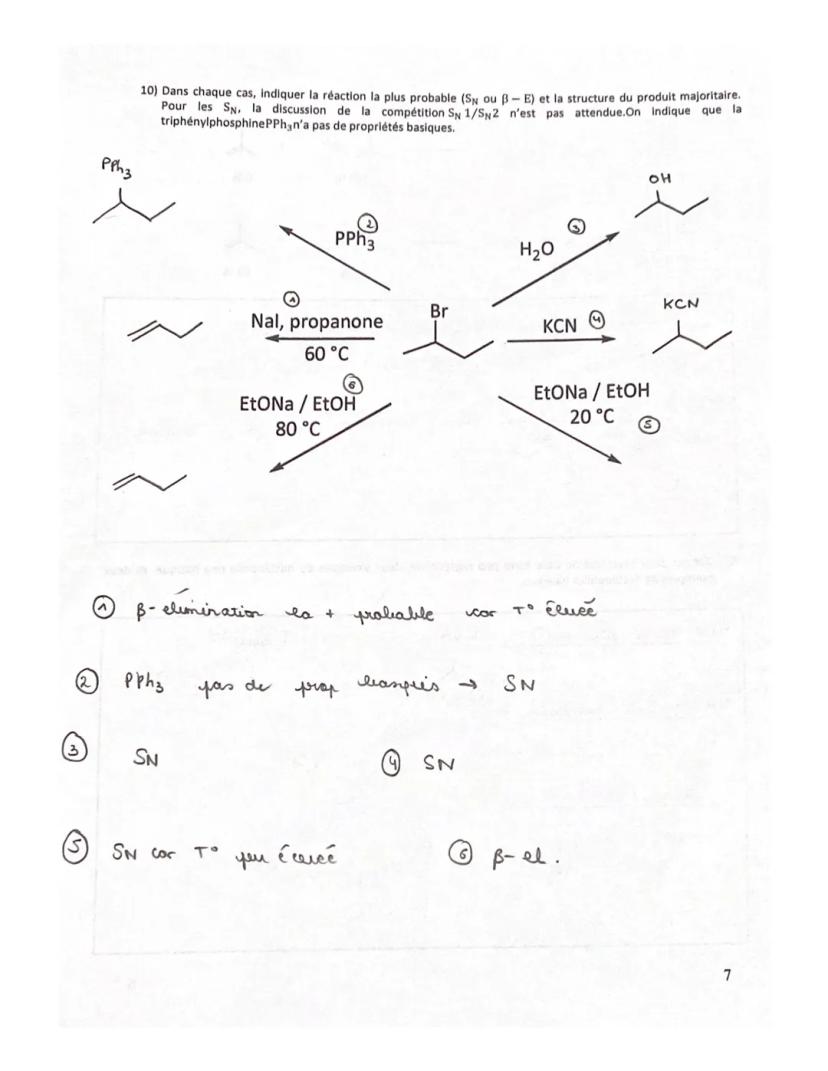 10) Dans chaque cas, indiquer la réaction la plus probable (SN ou β – E) et la structure du produit majoritaire.
Pour les SN, la discussion de la compétition SN 1/SN2 n'est pas attendue.On indique que la
triphénylphosphinePPh3n'a pas de propriétés basiques.
PPh3
OH
②
PPh3
③
H2O
①
NaI, propanone
60 °C
Br
KCN ④
KCN
⑥
EtONa / EtOH
80 °C
EtONa / EtOH
20 °C ⑤
① β-élimination la + probable car T° élevée
② PPh3 pas de prop basiques → SN
③ SN
④ SN
⑤ SN car T° peu élevée
⑥ β-el.
7